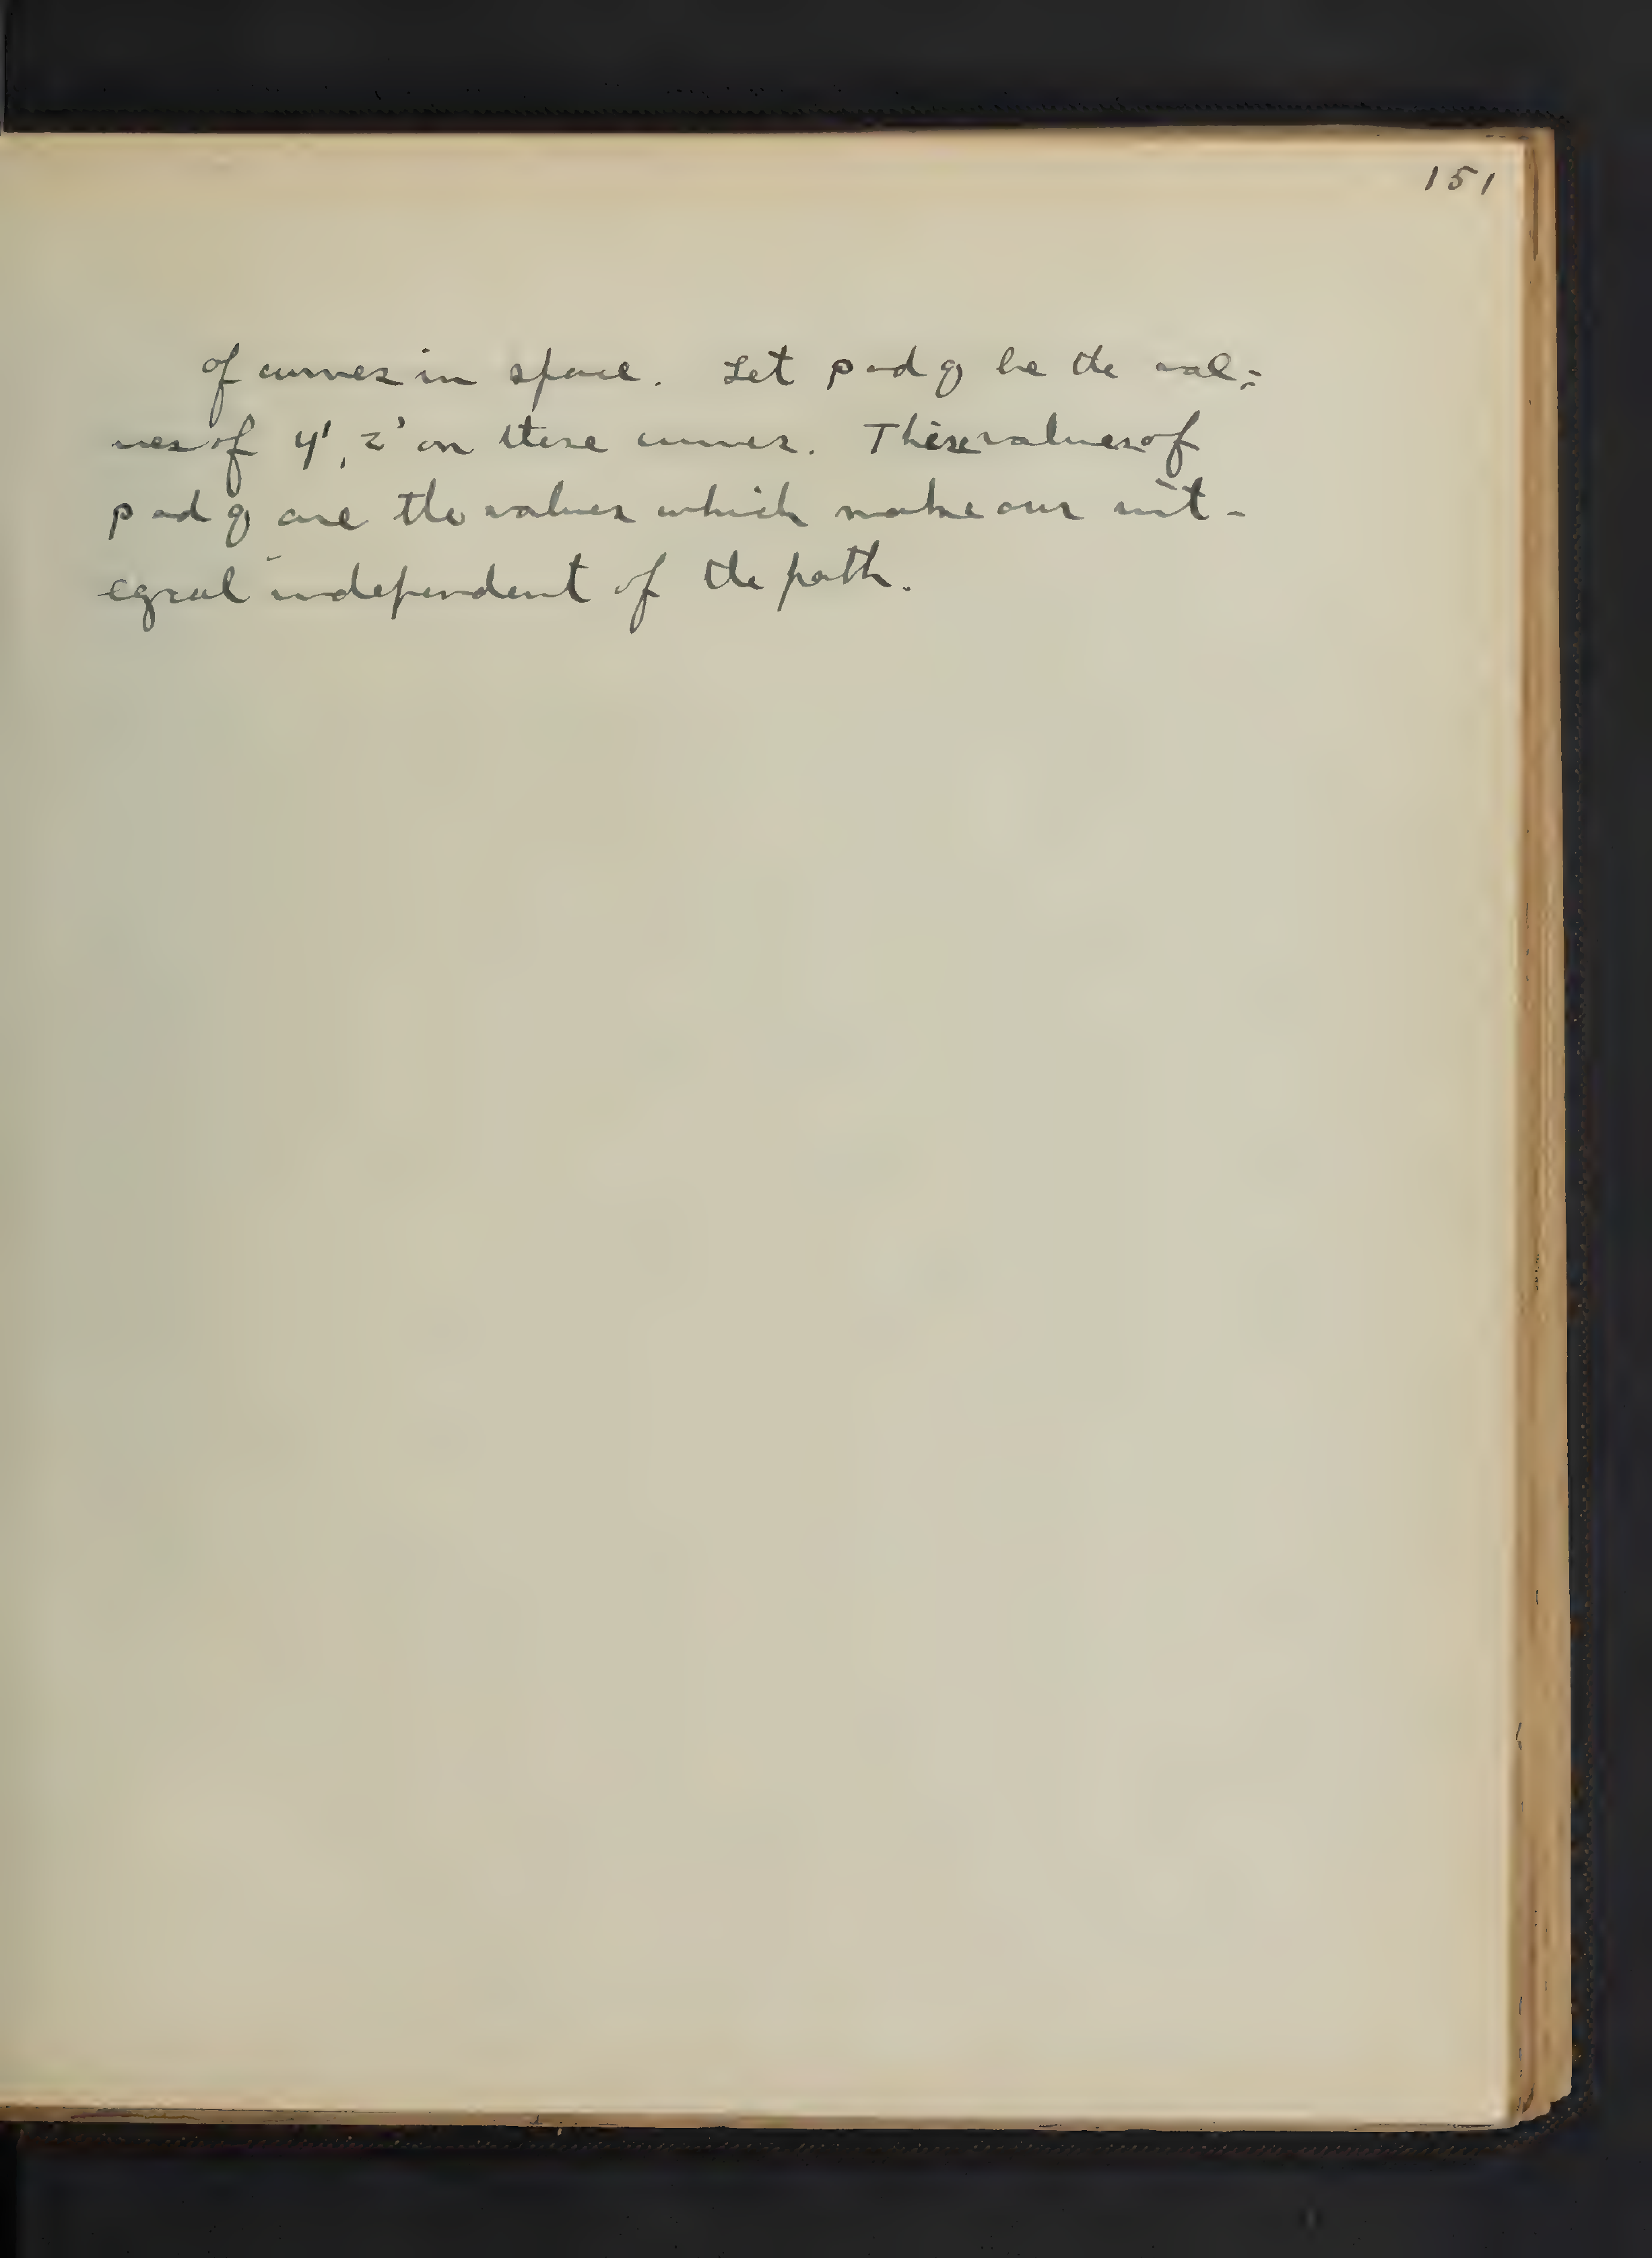 151
of curves in space. Let p and q be the val-
ues of y', z' on these curves. These values of
p and q are the values which make our int-
egral independent of the path.